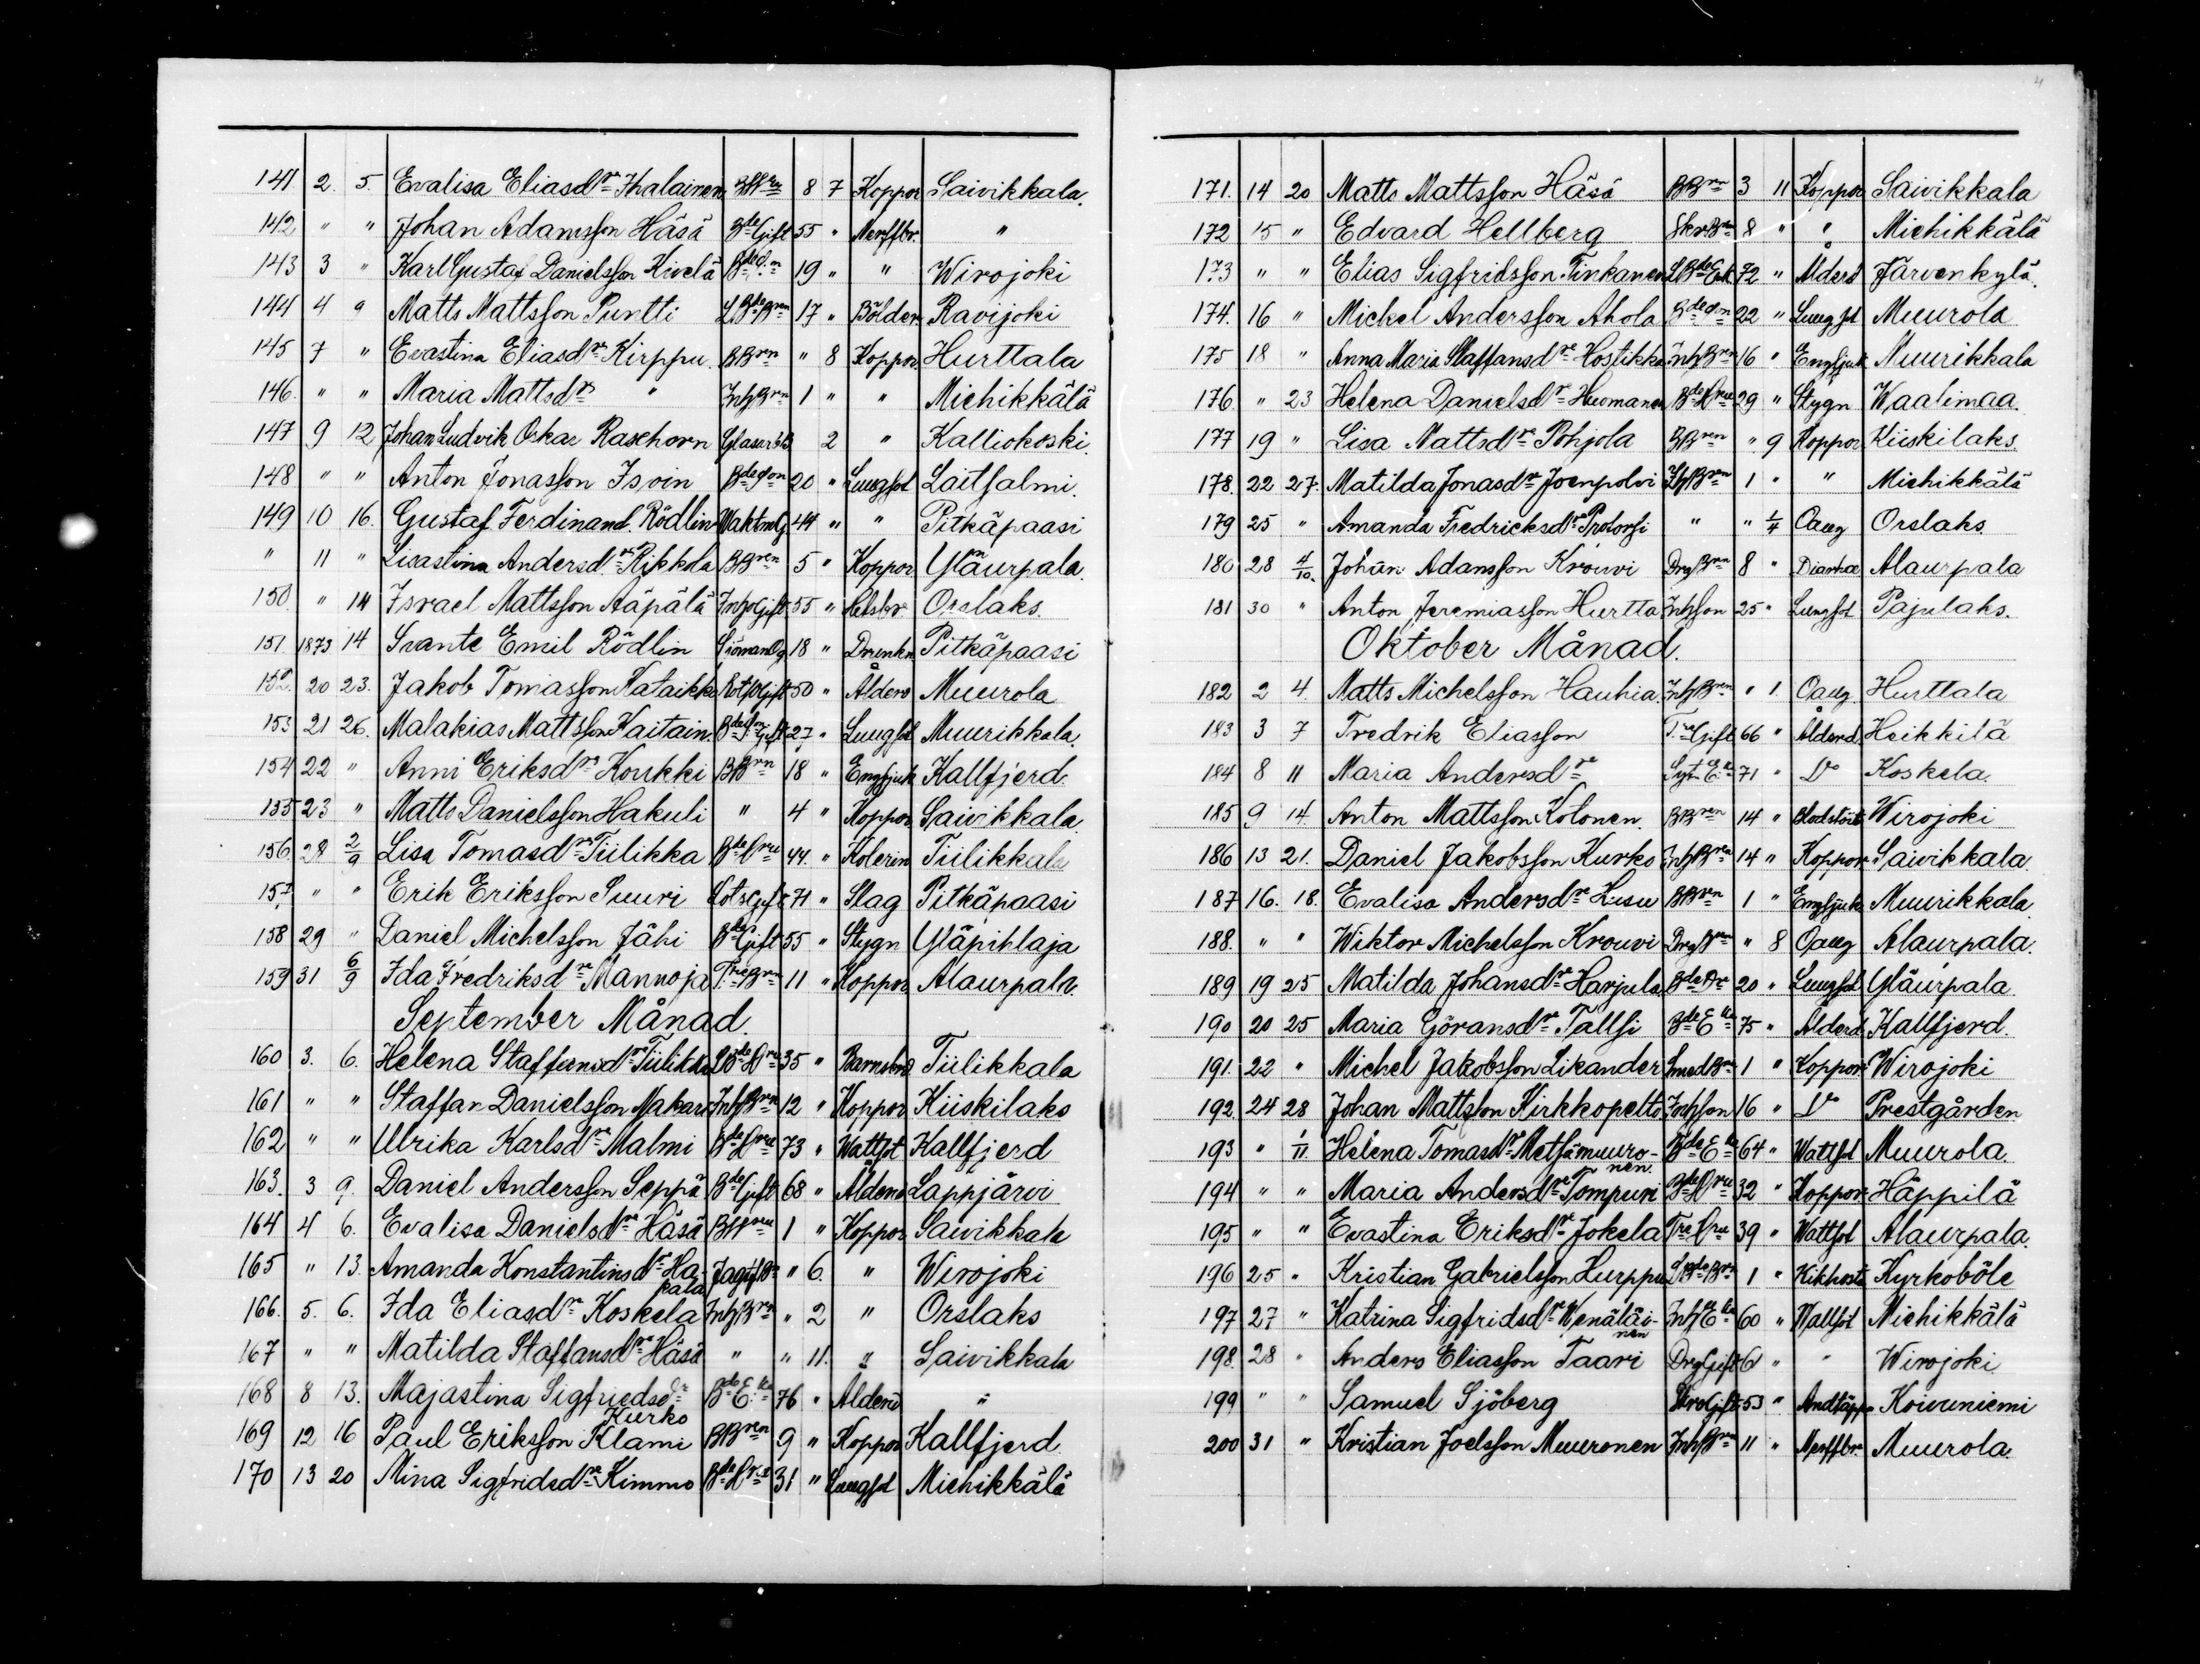 4
141 2. 5. Evalisa Eliasdr Ihalainen 8 7 Koppor Saivikkala.
142 " " Johan Adamsson Häsä Bde Gift 55 " Nerffbr. "
143 3 " Karl Gustaf Danielsson Kivelä 19 " " Wirojoki
144 4 9 Matts Mattsson Puntti L.Bde Bren 17 " Bölder Ravijoki
145 7 " Evastina Eliasdr Kirppu. BBren " 8 Koppor. Hurttala
146. " " Maria Mattsdr " Inh Bren 1 " " Michikkälä
147 9 12 Johan Ludvik Oskar Raschorn 2 " Kalliokoski.
148 " " Anton Jonasson Isoin Bde Son 20 " Lungsot Laitsalmi.
149 10 16. Gustaf Ferdinand Rödlin Waktm G. 44 " " Pitkäpaasi
" 11 " Lisastina Andersdr Rikkola BBren 5 " Koppor Yläurpala.
150 " 14 Israel Mattsson Aäpälä Inhs Gift 55 " Orslaks.
151. 1873 14 Svante Emil Rödlin 18 " Drunkn Pitkäpaasi
152. 20 23. Jakob Tomasson Rataikko Rots Gift 50 " Ålders Muurola
153 21 26. Malakias Mattsson Kaitain. Bde Son Gift 27 " Lungsot Muurikkala.
154 22 " Anni Eriksdr Koukki BBrn 18 " Englsjuk Kallfjerd.
155 23 " Matts Danielsson Hakuli " 4 " Koppor Saivikkala.
156. 28 2/9 Lisa Tomasdr Tiilikka Bde Hru 44. " Kolerin Tiilikkala
157 " " Erik Eriksson Suuri Rots Gift 71 " Slag Pitkäpaasi
158 29 " Daniel Michelsson Jähi Bde Gift 55 " Stygn Yläpihlaja
159 31 6/9 Ida Fredriksdr Mannoja Tre Brn 11 " Koppor Alaurpala.
September Månad.
160 3. 6. Helena Staffansdr Tiilikka LBde Hru 35 " Barnsbrd Tiilikkala
161 " " Staffan Danielsson Nakari Inh Brn 12 " Koppor Kiiskilaks
162 " " Ulrika Karlsdr Malmi Bde Hru 73 " Wattsot Kallfjerd
163. 3 9. Daniel Andersson Seppä Bde Gift 68 " Ålderd Lappjärvi
164 4 6. Evalisa Danielsdr Häsä 1 " Koppor Saivikkala
165 " 13. Amanda Konstantinsdr Ha- " 6. " Wirojoki
kala
166. 5. 6. Ida Eliasdr Koskela Inh Brn " 2 " Orslaks
167 " " Matilda Staffansdr Häsä " " 11. " Saivikkala
168 8 13. Majastina Sigfriedsdr Bde E:ka 76 " Ålderd "
Kurko
169 12 16 Paul Eriksson Klami BBren 9 " Koppor Kallfjerd.
170 13 20 Mina Sigfridsdr Kimmo Bde Hru 31 " Lungsot Michikkälä
171. 14 20 Matts Mattsson Häsä BBrn 3 11 Koppor Saivikkala
172 15 " Edvard Hellberg Skr Brn 8 " " Michikkälä
173 " " Elias Sigfridsson Tinkanen LBde Enk 72 " Ålderd Järvenkylä.
174. 16 " Mickel Andersson Ahola Bde Son 22 " Lungsot Muurola
175 18 " Anna Maria Staffansdr Hostikka Inh Brn 16 " Englsjuk Muurikkala
176. " 23 Helena Danielsdr Huomanen Bde Hru 29 " Stygn Waalimaa.
177 19 " Lisa Mattsdr Pohjola BBren " 9 Koppor Kiiskilaks
178. 22 27. Matilda Jonasdr Joenpolvi Inh Brn 1 " " Michikkälä
179 25 " Amanda Fredricksdr Protorsi " " 1/4 Oaeg Orslaks.
180 28 4/10. Johan Adamsson Krouvi Drg Brn 8 " Diarrhe Alaurpala
181 30 " Anton Jeremiasson Hurtta Inh Son 25 " Lungsot Pajulaks.
Oktober Månad.
182 2 4. Matts Michelsson Hauhia. Inh Brn " 1. Oaeg. Hurttala
183 3 7 Fredrik Eliasson T:re Gift 66 " Ålderd. Heikkilä
184 8 11 Maria Andersdr Syt. E:ka 71 " Do Koskela.
185 9 14. Anton Mattsson Kolonen. BBren 14 " Blodstört Wirojoki
186 13 21. Daniel Jakobsson Kurko Inh Brn 14 " Koppor. Saivikkala.
187 16. 18. Evalisa Andersdr Husu BBrn 1 " Englsjuk Muurikkala
188. " " Wiktor Michelsson Krouvi Drg Brn " 8 Oaeg Alaurpala.
189 19 25 Matilda Johansdr Harjula Bde Dr 20 " Lungsot Yläurpala.
190 20 25 Maria Göransdr Tallsi Bde E:ka 75 " Ålderd. Kallfjerd.
191. 22 " Michel Jakobsson Likander Smed Brn 1 " Koppor. Wirojoki
192. 24 28 Johan Mattsson Kirkkopelto Inh Son 16 " Do Prestgården
193 " 1/11 Helena Tomasdr Metsämuuro- Bde E:ka 64 " Wattsot Muurola.
nen.
194 " " Maria Andersdr Tompuri Bde Hru 32 " Koppor. Häppilä
195 " " Evastina Eriksdr Jokela Tre Hru 39 " Wattsot Alaurpala.
196 25 " Kristian Gabrielsson Hurppu LBde Brn 1 " Kikhosta Kyrkoböle
197 27 " Katrina Sigfridsdr Wenäläi- Inh E:ka 60 " Wattsot Michikkälä
nen
198. 28 " Anders Eliasson Taari Drg Gift 61 " " Wirojoki
199 " " Samuel Sjöberg Gift 53 " Andtäppa Koivuniemi
200 31 " Kristian Joelsson Muuronen Inh Brn 11 " Nerffbr. Muurola.